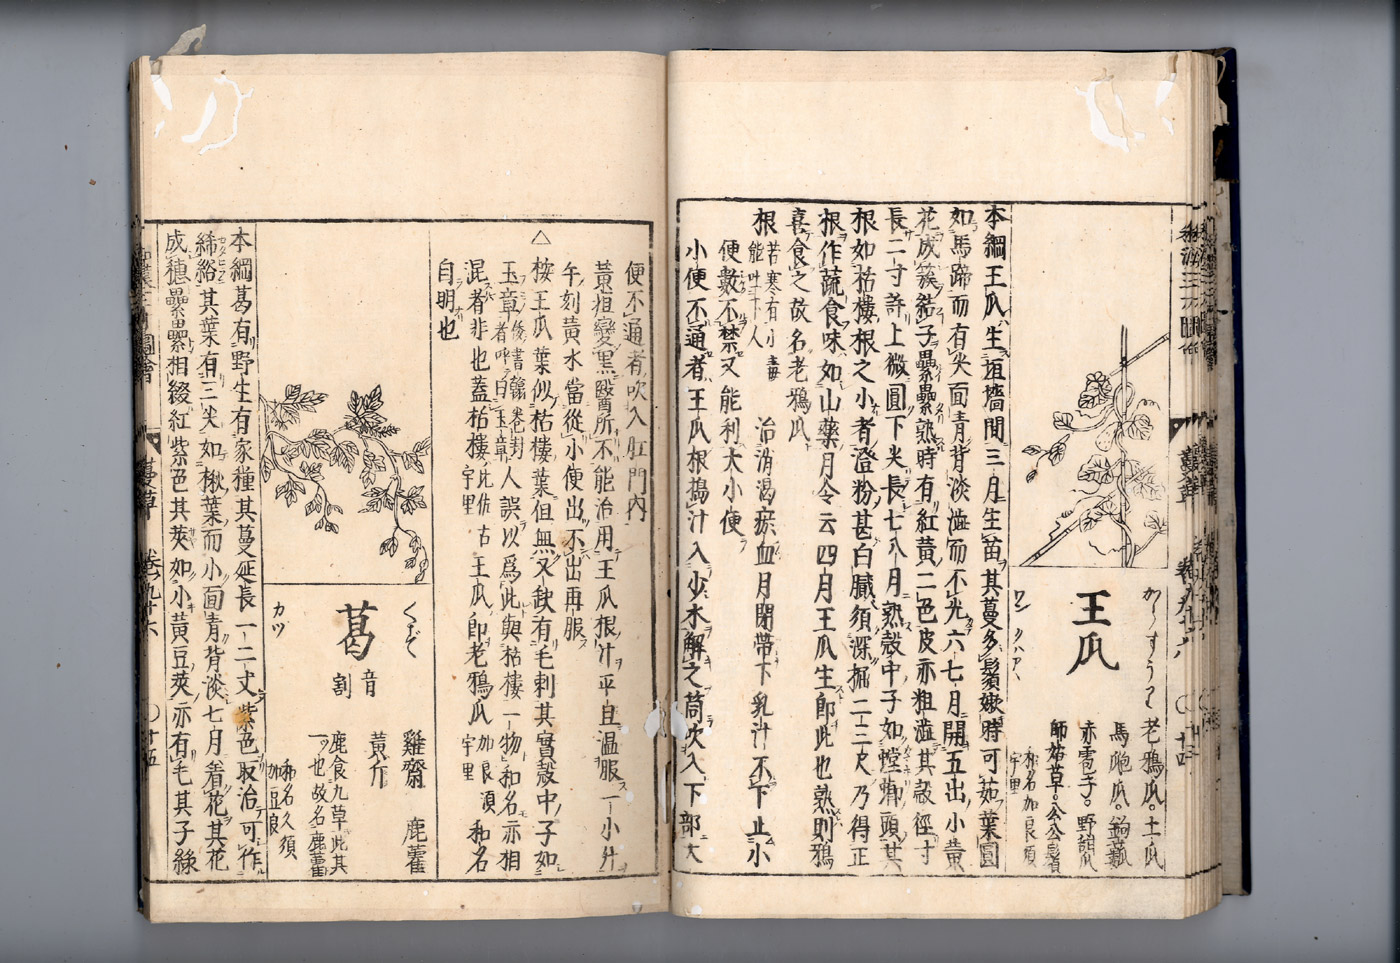 王瓜
老鴉瓜。土瓜
馬瓟瓜。鉤䕨
赤雹子。野甜瓜
師姑草。公公鬚
和名加良須
宇里
本綱王瓜生垣墻間三月生苗其蔓多鬚嫩時可茹葉圓
如馬蹄而有尖面青背淡澁而不光六七月開五出小黃
花成簇結子纍纍熟時有紅黃二色皮亦粗澁其殼徑寸
長二寸許上微圓下尖長七八月熟殼中子如螳螂頭其
根如栝樓根之小者澄粉甚白膩須深掘二三尺乃得正
根作蔬食味如山藥月令云四月王瓜生即此也熟則鴉
喜食之故名老鴉瓜
根 苦寒有小毒 能吐下人 治消渴瘀血月閉帶下乳汁不下止小
便數不禁又能利大小便
小便不通者王瓜根搗汁入少水解之筒吹入下部大
便不通者吹入肛門內
黃疸變黑醫所不能治用王瓜根汁平旦温服一小升
午刻黃水當從小便出不出再服
△按王瓜葉似栝樓葉但無叉缺有毛刺其實殼中子如
玉章 人誤以爲此與栝樓一物和名亦相
混者非也蓋栝樓 宇里 王瓜即老鴉瓜 加良須 宇里 和名
自明也
くず
葛 音割
カツ
雞齋 鹿藿
黃斤
鹿食九草此其
一也故名鹿藿
和名久須
加豆良
本綱葛有野生有家種其蔓延長一二丈紫色取治可作
絺綌其葉有三尖如楸葉而小面青背淡七月着花其花
成穗纍纍相綴紅紫色其莢如小黃豆莢亦有毛其子綠
蔓草 卷九十六 〇十五